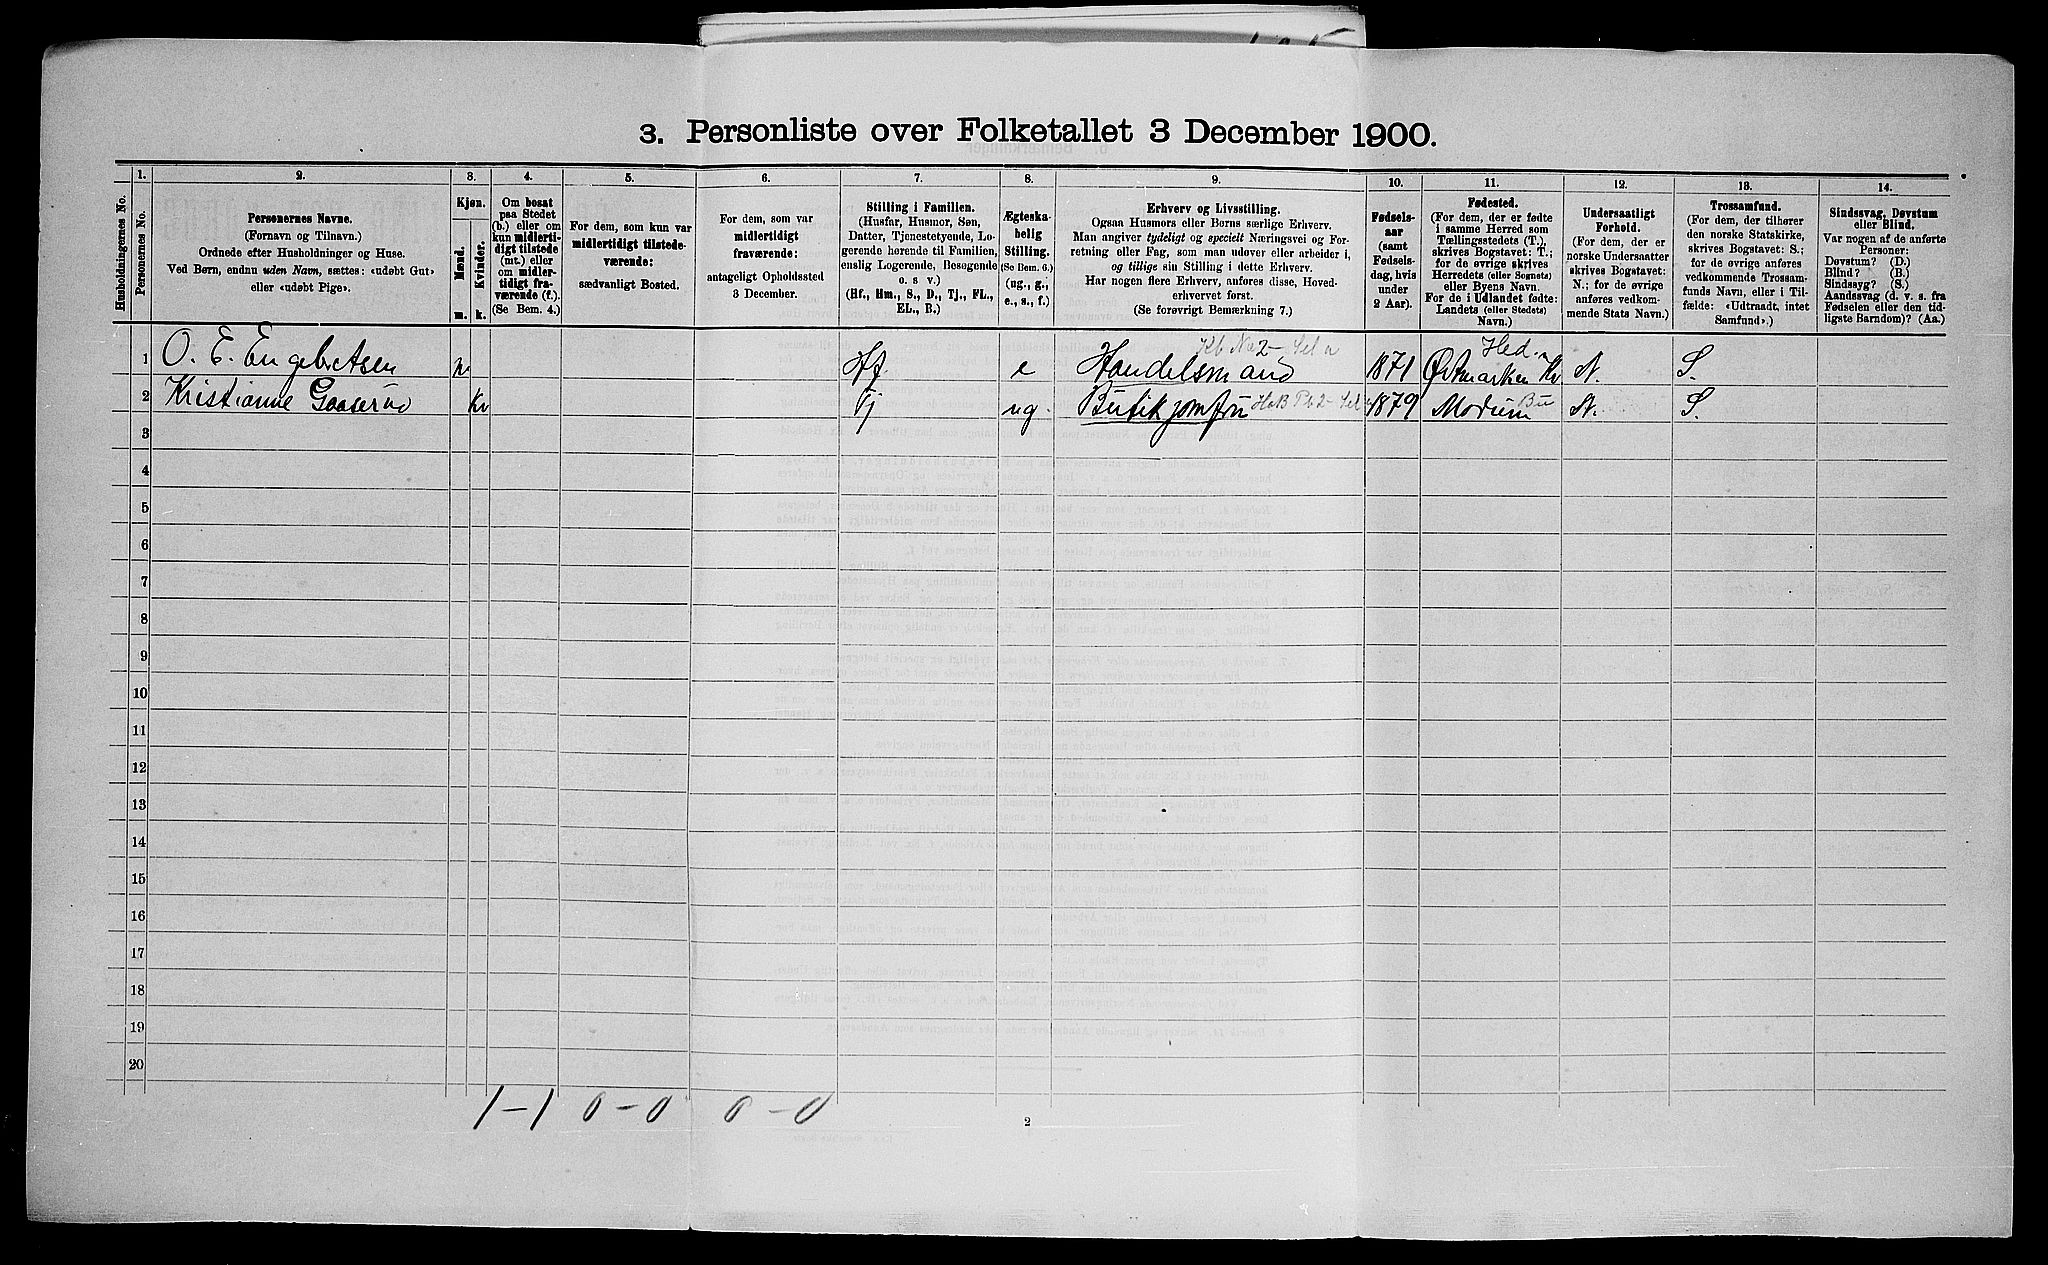 3. Personliste over Folketallet 3 December 1900.
1. 2. 3. 4. 5. 6. 7. 8. 9. 10. 11. 12. 13. 14.
Husholdningernes No.
Personernes No.
Personernes Navne.
(Fornavn og Tilnavn.)
Ordnede efter Husholdninger og Huse.
Ved Børn, endnu uden Navn, sættes: «udøbt Gut»
eller «udøbt Pige».
Kjøn.
Mænd.
Kvinder.
m. k.
Om bosat
paa Stedet
(b.) eller om
kun midlerti-
digt tilstede
(mt.) eller
om midler-
tidigt fra-
værende (f.).
(Se Bem. 4.)
For dem, som kun var
midlertidigt tilstede-
værende:
sædvanligt Bosted.
For dem, som var
midlertidigt
fraværende:
antageligt Opholdssted
3 December.
Stilling i Familien.
(Husfar, Husmor, Søn,
Datter, Tjenestetyende, Lo-
gerende hørende til Familien,
enslig Logerende, Besøgende
o. s. v.)
(Hf., Hm., S., D., Tj., FL.,
EL., B.)
Ægteska-
belig
Stilling.
(Se Bem. 6.)
(ug., g.,
e., s., f.)
Erhverv og Livsstilling.
Ogsaa Husmors eller Børns særlige Erhverv.
Man angiver tydeligt og specielt Næringsvei og For-
retning eller Fag, som man udøver eller arbeider i,
og tillige sin Stilling i dette Erhverv.
Har nogen flere Erhverv, anføres disse, Hoved-
erhvervet først.
(Se forøvrigt Bemærkning 7.)
Fødsels-
aar
(samt
Fødsels-
dag, hvis
under
2 Aar).
Fødested.
(For dem, der er fødte
i samme Herred som
Tællingsstedets (T.),
skrives Bogstavet: T.;
for de øvrige skrives
Herredets (eller Sognets)
eller Byens Navn.
For de i Udlandet fødte:
Landets (eller Stedets)
Navn.)
Undersaatligt
Forhold.
(For dem, der er
norske Undersaatter
skrives Bogstavet:
N.; for de øvrige
anføres vedkom-
mende Stats Navn.)
Trossamfund.
(For dem, der tilhører
den norske Statskirke,
skrives Bogstavet: S.;
for de øvrige anføres
vedkommende Trossam-
funds Navn, eller i Til-
fælde: «Udtraadt, intet
Samfund».)
Sindssvag, Døvstum
eller Blind.
Var nogen af de anførte
Personer:
Døvstum? (D.)
Blind? (B.)
Sindssyg? (S.)
Aandssvag (d. v. s. fra
Fødselen eller den tid-
ligste Barndom)? (Aa.)
1 O. E. Engebretsen m Hf. e Handelsmand 1871 Østmarken Hed N. S.
2 Kristianne Gaaserud Kv Tj ug. Butikjomfru 1879 Modum Bu N. S.
3
4
5
6
7
8
9
10
11
12
13
14
15
16
17
18
19
20
1-1 0-0 0-0
2